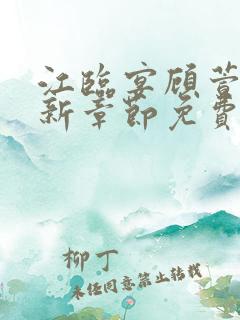 江臨宴顾萱
新章節免費
柳丁
未经同意禁止转载